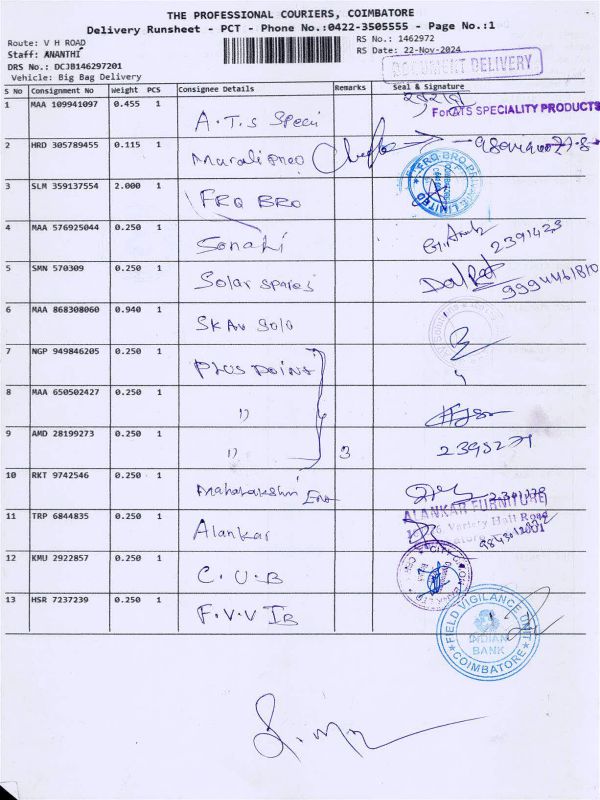 THE PROFESSIONAL COURIERS, COIMBATORE
Delivery Runsheet - PCT - Phone No.:0422-3505555 - Page No.:1
Route: V H ROAD
RS No.: 1462972
Staff: ANANTHI
RS Date: 22-Nov-2024
DRS No.: DCJB146297201
Vehicle: Big Bag Delivery
DOCUMENT DELIVERY
S No Consignment No Weight PCS Consignee Details Remarks Seal & Signature
1 MAA 109941097 0.455 1 A.T.S Speci
For ATS SPECIALITY PRODUCTS
2 HRD 305789455 0.115 1
3 SLM 359137554 2.000 1 FRQ BRO
4 MAA 576925044 0.250 1 Sonaki 2391423
5 SMN 570309 0.250 1 Solar spares
6 MAA 868308060 0.940 1
7 NGP 949846205 0.250 1 PLUS POINT
8 MAA 650502427 0.250 1 "
9 AMD 28199273 0.250 1 " 3 2395271
10 RKT 9742546 0.250 1 Mahalakshmi
ALANKAR FURNITURE
Variety Hall Road
11 TRP 6844835 0.250 1 Alankar
12 KMU 2922857 0.250 1 C.U.B
13 HSR 7237239 0.250 1 F.V.V IB
FIELD VIGILANCE UNIT
INDIAN BANK
COIMBATORE